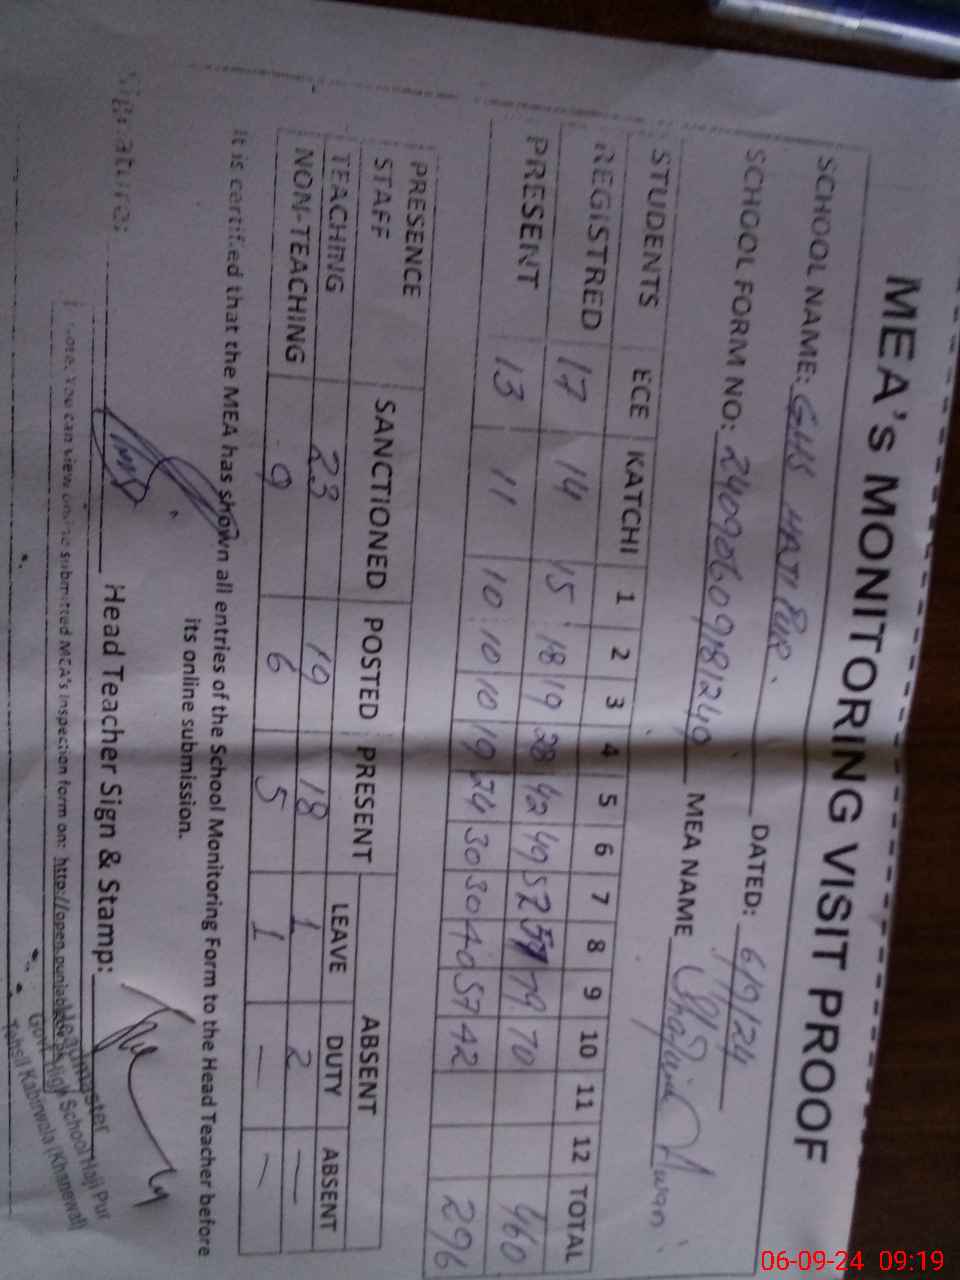 MEA's MONITORING VISIT PROOF
SCHOOL NAME: GHS HAJI PUR. DATED: 6/9/24
SCHOOL FORM NO: 24090609181240 MEA NAME Awan
STUDENTS ECE KATCHI 1 2 3 4 5 6 7 8 9 10 11 12 TOTAL
REGISTRED 17 14 15 18 19 28 42 49 52 57 79 70 460
PRESENT 13 11 10 10 10 19 24 30 30 40 57 42 296
PRESENCE STAFF SANCTIONED POSTED PRESENT ABSENT
LEAVE DUTY ABSENT
TEACHING 23 19 18 1 2 —
NON-TEACHING 9 6 5 1 — —
It is certified that the MEA has shown all entries of the School Monitoring Form to the Head Teacher before
its online submission.
Signature: Head Teacher Sign & Stamp:
Note: You can view online submitted MEA's inspection form on: http://open.punjab
Headmaster
Govt. High School Haji Pur
Tehsil Kabirwala (Khanewal)
06-09-24 09:19